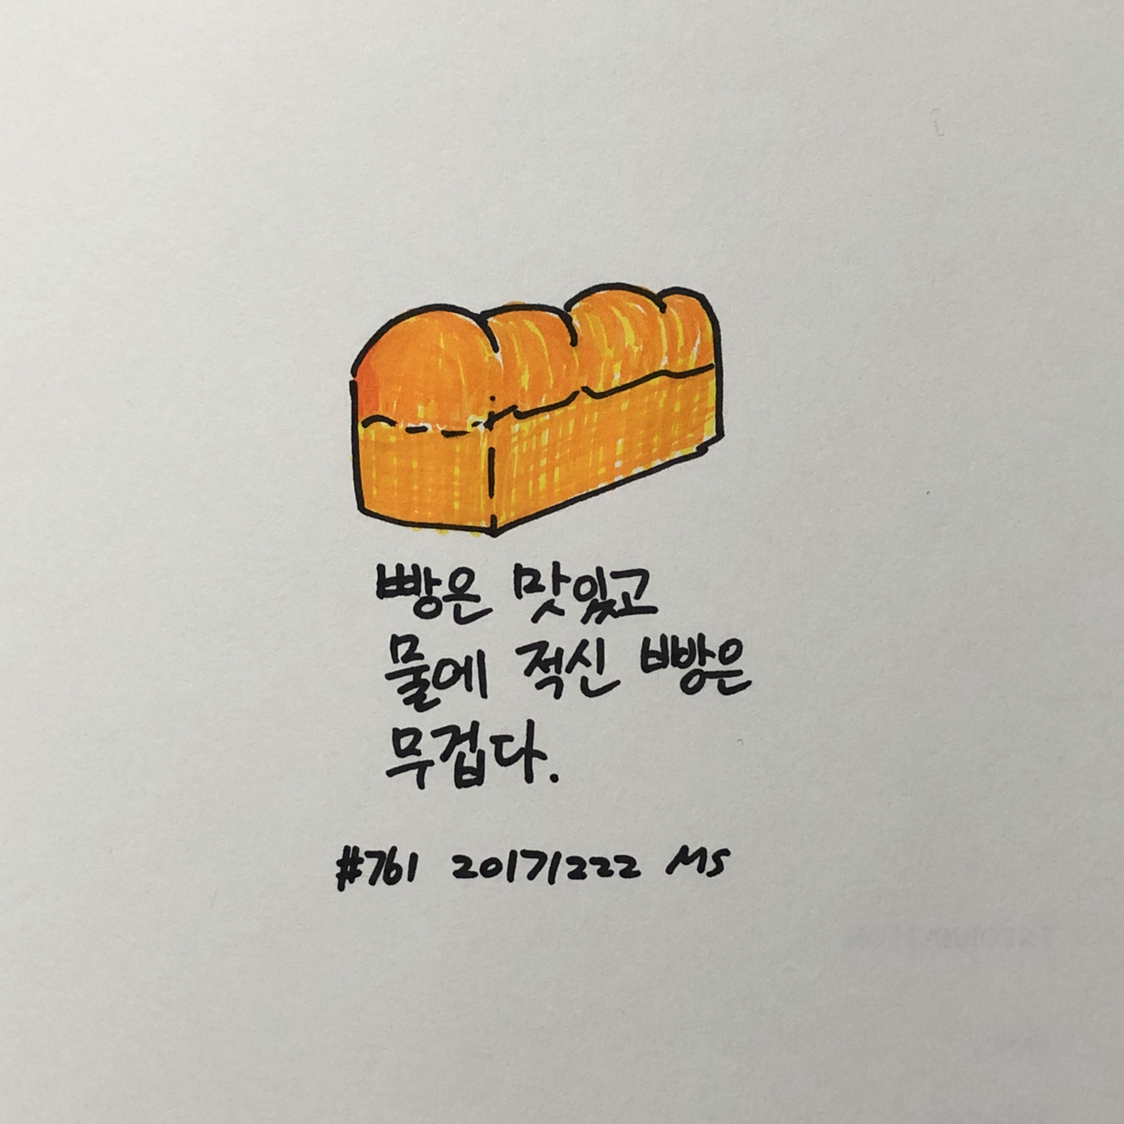 빵은 맛있고
물에 적신 빵은
무겁다.
#761 20171222 MS
INFORMATION